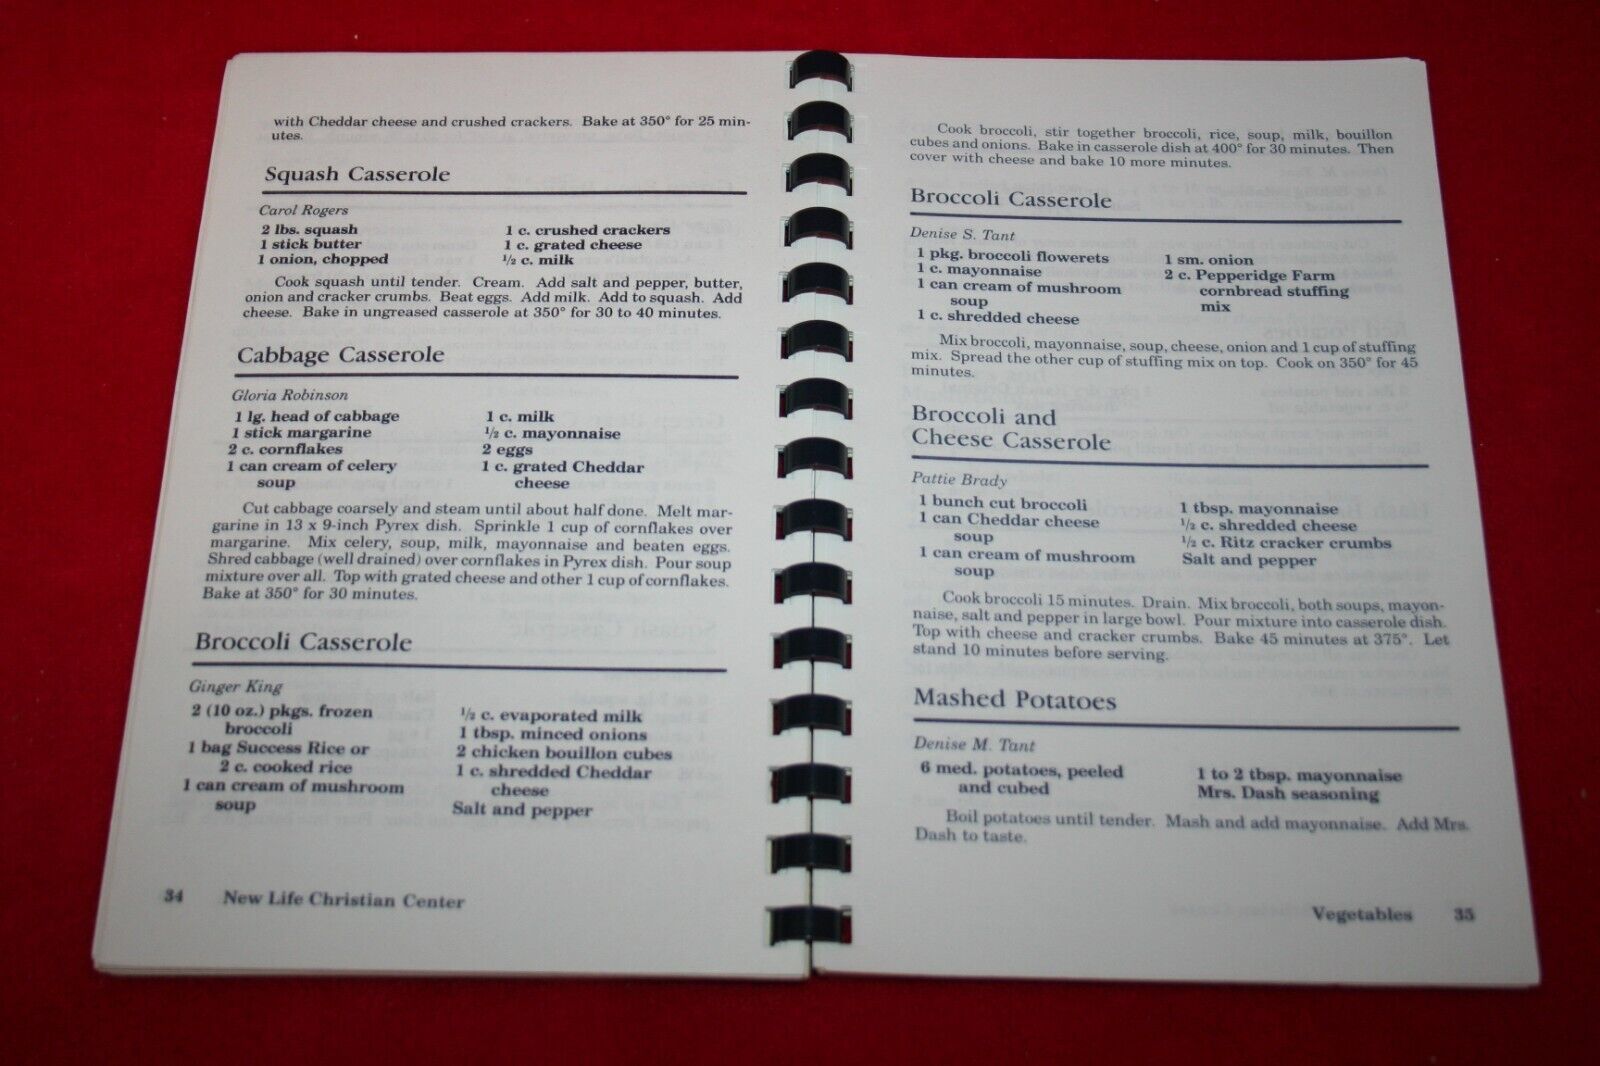 with Cheddar cheese and crushed crackers. Bake at 350° for 25 min-
utes.
Squash Casserole
Carol Rogers
2 lbs. squash
1 stick butter
1 onion, chopped
1 c. crushed crackers
1 c. grated cheese
½ c. milk
Cook squash until tender. Cream. Add salt and pepper, butter,
onion and cracker crumbs. Beat eggs. Add milk. Add to squash. Add
cheese. Bake in ungreased casserole at 350° for 30 to 40 minutes.
Cabbage Casserole
Gloria Robinson
1 lg. head of cabbage
1 stick margarine
2 c. cornflakes
1 can cream of celery
soup
1 c. milk
½ c. mayonnaise
2 eggs
1 c. grated Cheddar
cheese
Cut cabbage coarsely and steam until about half done. Melt mar-
garine in 13 x 9-inch Pyrex dish. Sprinkle 1 cup of cornflakes over
margarine. Mix celery, soup, milk, mayonnaise and beaten eggs.
Shred cabbage (well drained) over cornflakes in Pyrex dish. Pour soup
mixture over all. Top with grated cheese and other 1 cup of cornflakes.
Bake at 350° for 30 minutes.
Broccoli Casserole
Ginger King
2 (10 oz.) pkgs. frozen
broccoli
1 bag Success Rice or
2 c. cooked rice
1 can cream of mushroom
soup
½ c. evaporated milk
1 tbsp. minced onions
2 chicken bouillon cubes
1 c. shredded Cheddar
cheese
Salt and pepper
34 New Life Christian Center
Cook broccoli, stir together broccoli, rice, soup, milk, bouillon
cubes and onions. Bake in casserole dish at 400° for 30 minutes. Then
cover with cheese and bake 10 more minutes.
Broccoli Casserole
Denise S. Tant
1 pkg. broccoli flowerets
1 c. mayonnaise
1 can cream of mushroom
soup
1 c. shredded cheese
1 sm. onion
2 c. Pepperidge Farm
cornbread stuffing
mix
Mix broccoli, mayonnaise, soup, cheese, onion and 1 cup of stuffing
mix. Spread the other cup of stuffing mix on top. Cook on 350° for 45
minutes.
Broccoli and
Cheese Casserole
Pattie Brady
1 bunch cut broccoli
1 can Cheddar cheese
soup
1 can cream of mushroom
soup
1 tbsp. mayonnaise
½ c. shredded cheese
½ c. Ritz cracker crumbs
Salt and pepper
Cook broccoli 15 minutes. Drain. Mix broccoli, both soups, mayon-
naise, salt and pepper in large bowl. Pour mixture into casserole dish.
Top with cheese and cracker crumbs. Bake 45 minutes at 375°. Let
stand 10 minutes before serving.
Mashed Potatoes
Denise M. Tant
6 med. potatoes, peeled
and cubed
1 to 2 tbsp. mayonnaise
Mrs. Dash seasoning
Boil potatoes until tender. Mash and add mayonnaise. Add Mrs.
Dash to taste.
Vegetables 35